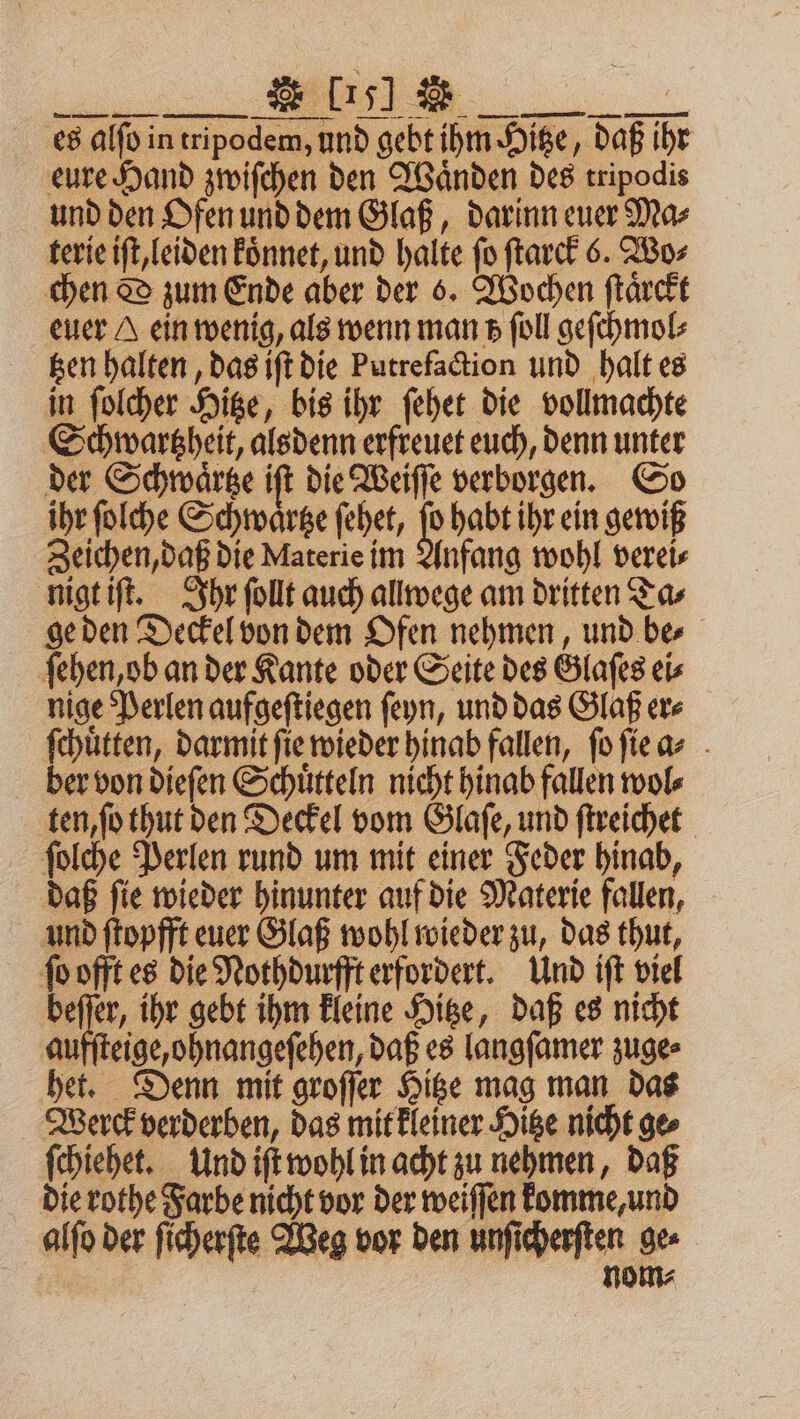 [15]
es alſo in tripodem, und gebt ihm Hitze, daß ihr
eure Hand zwiſchen den Waͤnden des tripodis
und den Ofen und dem Glaß, darinn euer Ma-
terie iſt, leiden koͤnnet, und halte ſo ſtarck 6. Wo-
chen zum Ende aber der 6. Wochen ſtaͤrckt
euer 🜁 ein wenig, als wenn man ♄ ſoll geſchmol-
tzen halten, das iſt die Putrefaction und halt es
in ſolcher Hitze, bis ihr ſehet die vollmachte
Schwartzheit, alsdenn erfreuet euch, denn unter
der Schwaͤrtze iſt die Weiſſe verborgen. So
ihr ſolche Schwaͤrtze ſehet, ſo habt ihr ein gewiß
Zeichen, daß die Materie im Anfang wohl verei-
nigt iſt. Ihr ſollt auch allwege am dritten Ta-
ge den Deckel von dem Ofen nehmen, und be-
ſehen, ob an der Kante oder Seite des Glaſes ei-
nige Perlen aufgeſtiegen ſeyn, und das Glaß er-
ſchuͤtten, darmit ſie wieder hinab fallen, ſo ſie a-
ber von dieſen Schuͤtteln nicht hinab fallen wol-
ten, ſo thut den Deckel vom Glaſe, und ſtreichet
ſolche Perlen rund um mit einer Feder hinab,
daß ſie wieder hinunter auf die Materie fallen,
und ſtopfft euer Glaß wohl wieder zu, das thut,
ſo offt es die Nothdurfft erfordert. Und iſt viel
beſſer, ihr gebt ihm kleine Hitze, daß es nicht
aufſteige, ohnangeſehen, daß es langſamer zuge-
het. Denn mit groſſer Hitze mag man das
Werck verderben, das mit kleiner Hitze nicht ge-
ſchiehet. Und iſt wohl in acht zu nehmen, daß
die rothe Farbe nicht vor der weiſſen komme, und
alſo der ſicherſte Weg vor den unſicherſten ge-
nom-